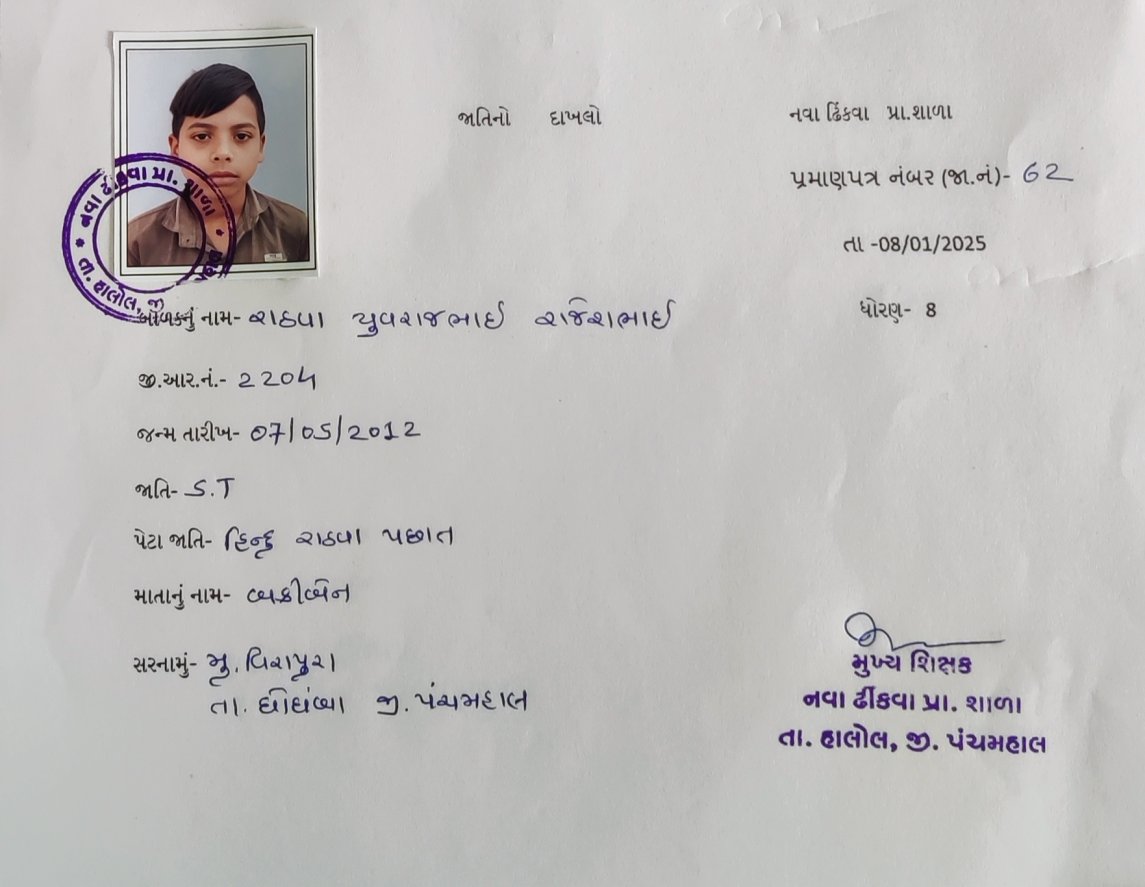 જાતિનો દાખલો
નવા ઢિંકવા પ્રા.શાળા
પ્રમાણપત્ર નંબર (જા.નં)- 62
તા -08/01/2025
ધોરણ- 8
નવા ઢીંકવા પ્રા. શાળા
તા. હાલોલ, જી
બાળકનું નામ- રાઠવા યુવરાજભાઈ રાજેશભાઈ
જી.આર.નં.- 2204
જન્મ તારીખ- 07/05/2012
જાતિ- S.T
પેટા જાતિ- હિન્દુ રાઠવા પછાત
માતાનું નામ-
સરનામું- મુ. વિરાપુરા
તા. ઘોઘંબા જી. પંચમહાલ
મુખ્ય શિક્ષક
નવા ઢીંકવા પ્રા. શાળા
તા. હાલોલ, જી. પંચમહાલ